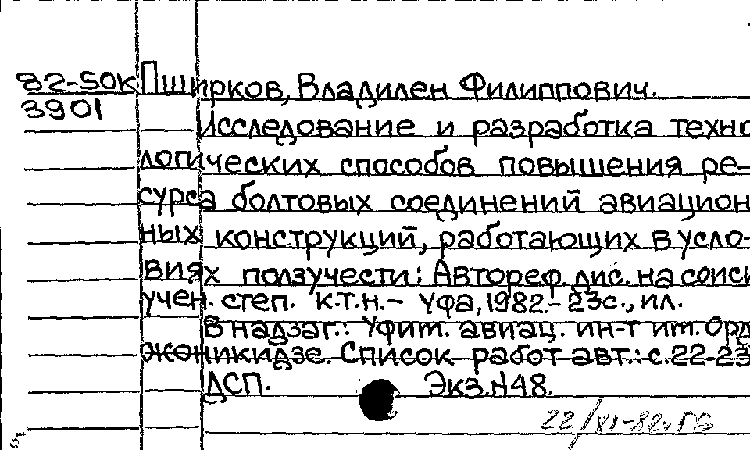 82-50К Пширков, Владилен Филиппович.
3901
Исследование и разработка техно
логических способов повышения ре-
сурса болтовых соединений авиацион
ных конструкций, работающих в усло-
виях ползучести: Автореф. дис. на соиск
учен. степ. к.т.н. – Уфа, 1982. – 23с., ил.
В надзаг.: Уфим. авиац. ин-т им. Орд
жоникидзе. Список работ авт.: с. 22-23
ДСП. Экз. №48.